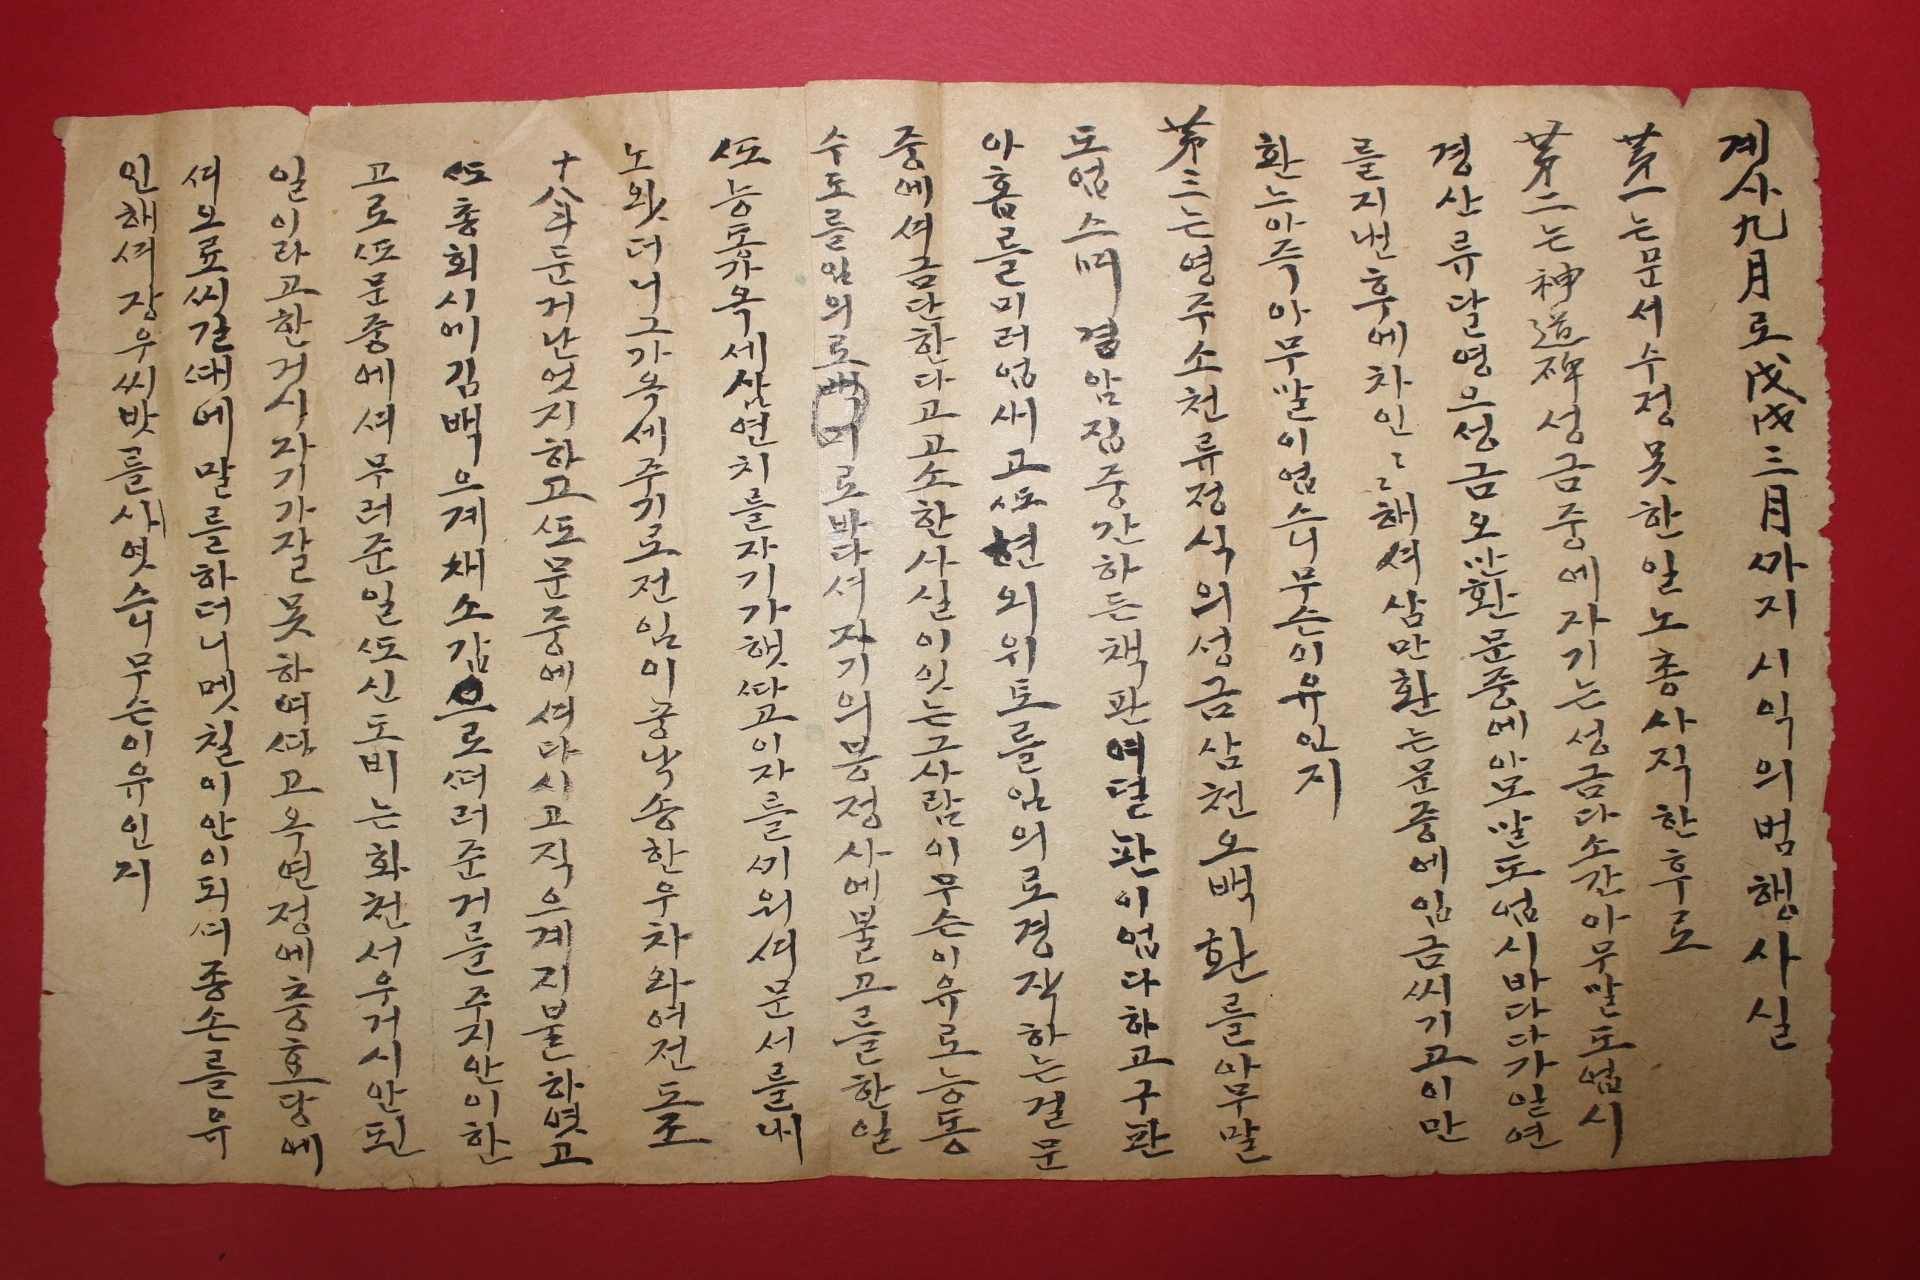 계사九月로戊戌三月ᄭᅡ지 시익의범행사실
苐一는문셔수정못한일노총사직한후로
苐二는神道碑성금중에자기는성금다소간아무말도업시
경산류달영으성금오만환문중에아모말도업시바다다가일연
를지낸후에차인ㄹㄹ해셔삼만환는문중에입금씨기고이만
환는아주아무말이업스니무슨이유인지
苐三는영주소천류정식의성금삼천오백환를아무말
도업스며 겸암집중간하든책판여덜판이업다하고구판
아홉를미러업쌔고ᄯᅩ현외위토를임의로경작하는걸문
중에셔금단한다고고소한사실이잇는그사람이무슨이유로능동
수도를임의로백미로바다셔자기의봉정사에불고를한일
ᄯᅩ능동가옥세삼연치를자기가햇ᄯᅡ고이자를ᄭᅵ워셔문셔를내
노왓더니그가옥세주기로전임이궁낙송한우차와여전도조
十八斗둔거난엇지하고ᄯᅩ문중에셔다시고직으계지불하엿고
ᄯᅩ총회시에김백으계채소갑으로ᄯᅥ러준거를주지안이한
고로ᄯᅩ문중에셔무러준일ᄯᅩ신도비는화천서우거시안된
일이라고한거시자기가잘못하여ᄯᅡ고옥연정에충효당에
셔오륙씨갈때에말를하더니멧칠이안이되며종손를유
인해셔장우씨밧를사엿스니무슨이유인지